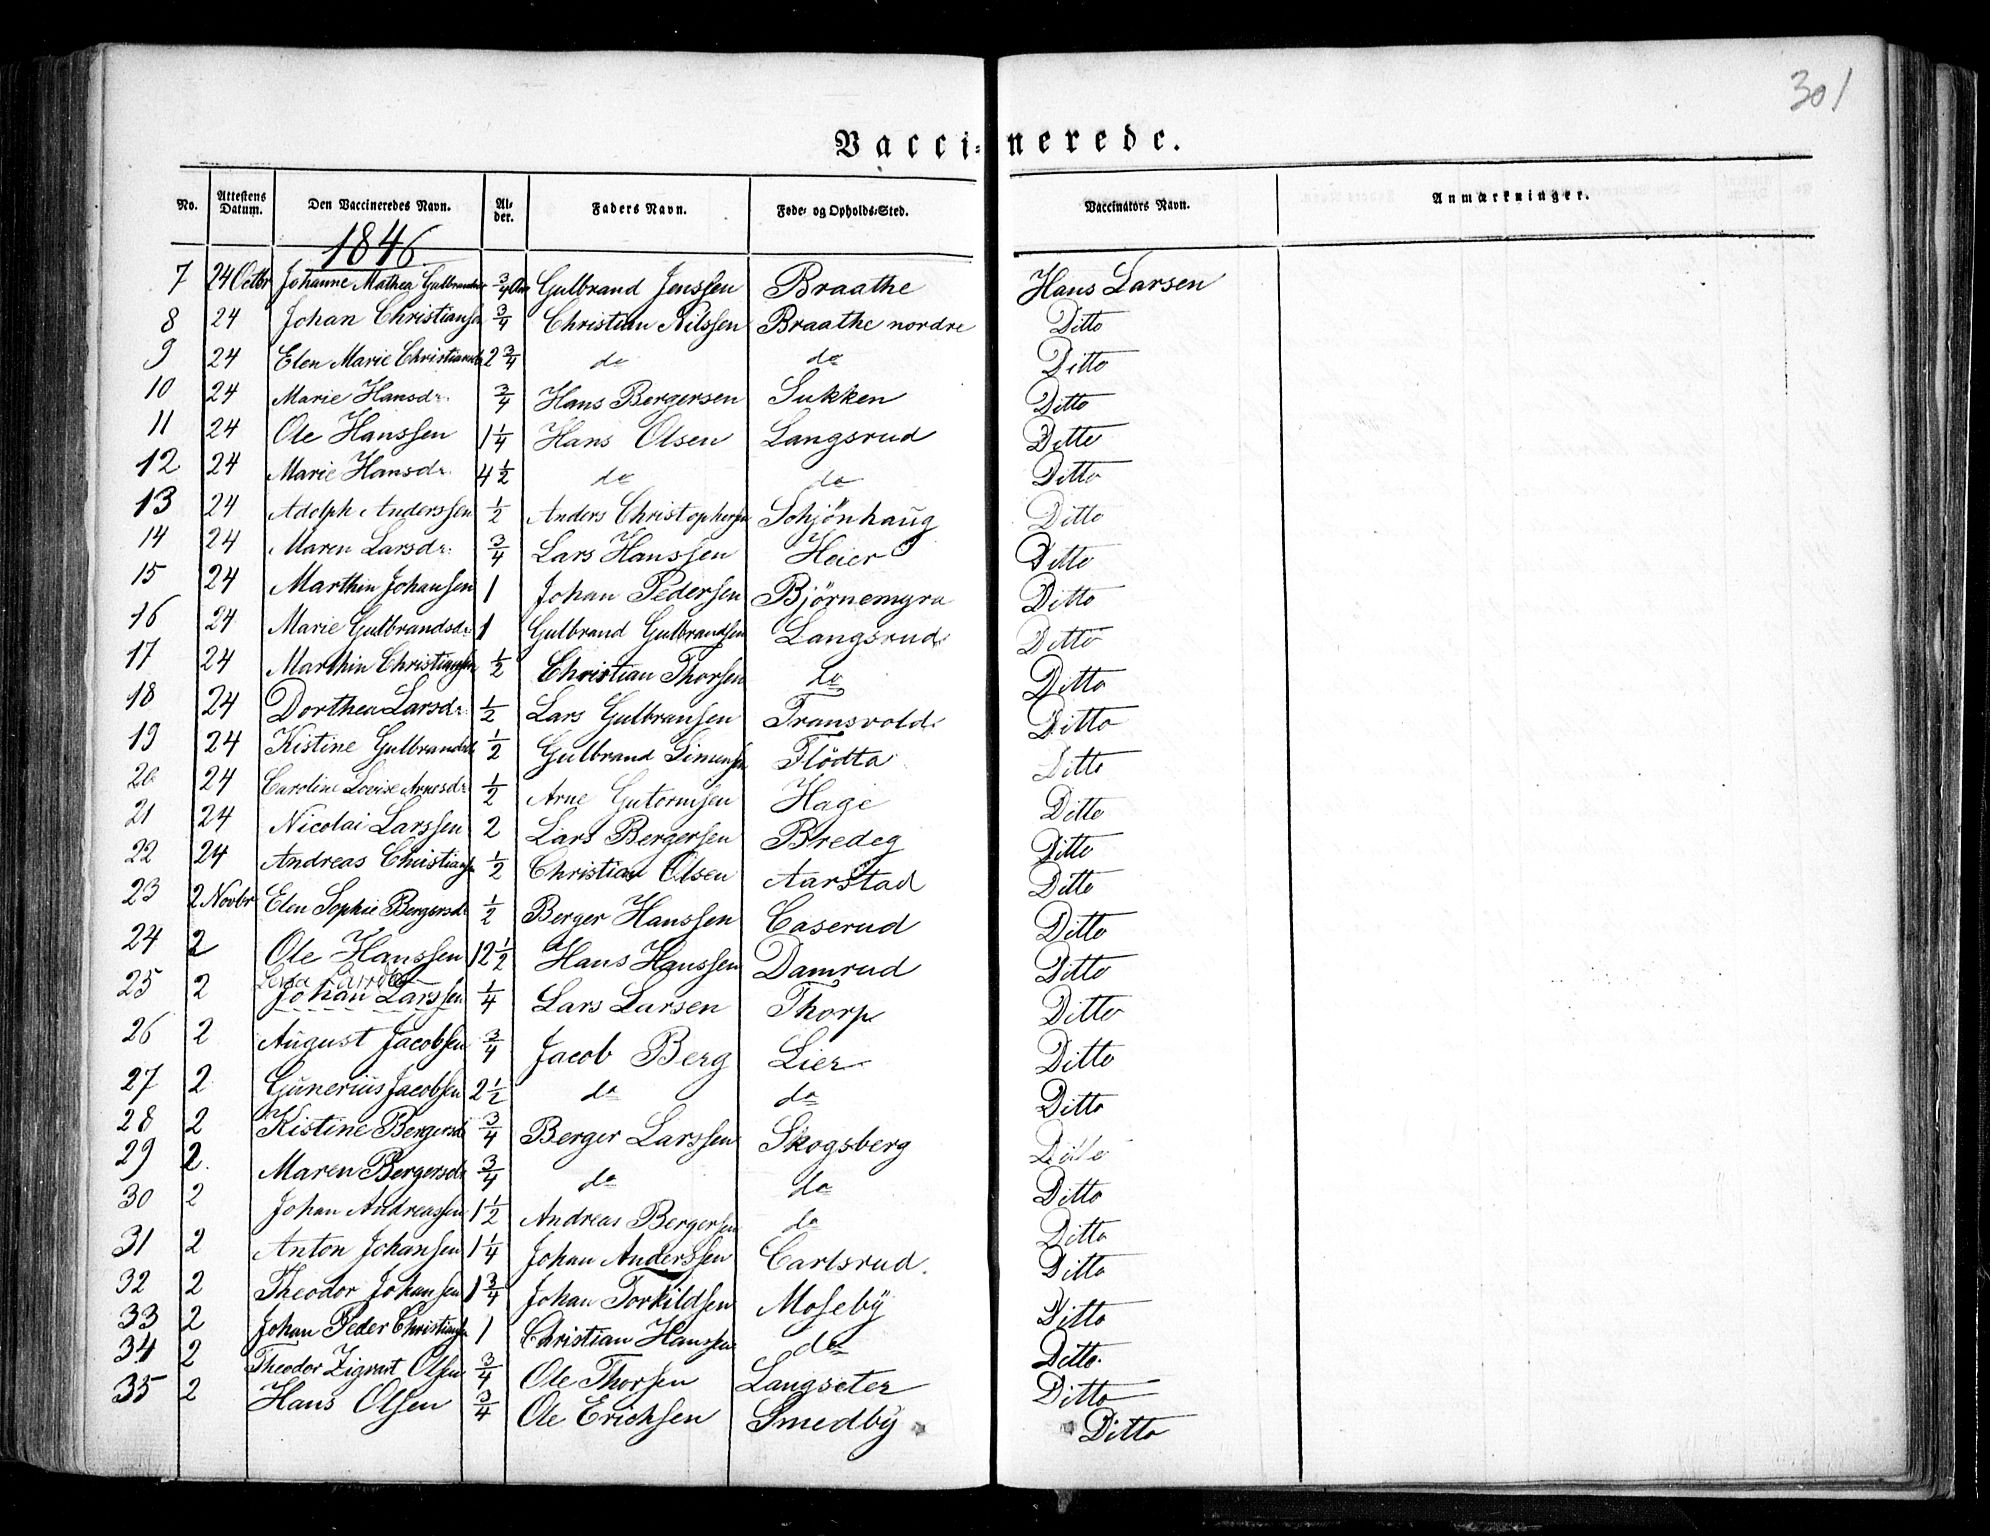 301
Vacci-nerede.
No. Attestens Datum. Den Vaccineredes Navn. Al-der. Faders Navn. Føde- og Opholds-Sted. Vaccinators Navn. Anmærkninger.
1846
7 24 Octbr Johanne Mathea Gulbrandsdr 3/4 Aar Gulbrand Jenssen Braathe Hans Larsen
8 24 Johan Christiansen 3/4 Christian Nilssen Braathe nordre Ditto
9 24 Elen Marie Christiansdr 2 3/4 do do Ditto
10 24 Marie Hansdr. 3/4 Hans Bergersen Sukken Ditto
11 24 Ole Hanssen 1 1/4 Hans Olsen Langsrud Ditto
12 24 Marie Hansdr. 4 1/2 do do Ditto
13 24 Adolph Anderssen 1/2 Anders Christophersen Schjönhaug Ditto
14 24 Maren Larsdr. 3/4 Lars Hanssen Heier Ditto
15 24 Marthin Johansen 1 Johan Pedersen Björnemyra Ditto
16 24 Marie Gulbrandsdr 1 Gulbrand Gulbrandsen Langsrud Ditto
17 24 Marthin Christiansen 1/2 Christian Thorsen do Ditto
18 24 Dorthea Larsdr. 1/2 Lars Gulbransen Transvold Ditto
19 24 Kistine Gulbrandsdr 1/2 Gulbrand Simensen Flödta Ditto
20 24 Caroline Lovise Arnesdr 1/2 Arne Gutormsen Hage Ditto
21 24 Nicolai Larssen 2 Lars Bergersen Bredeg Ditto
22 24 Andreas Christiansen 1/2 Christian Olsen Aarstad Ditto
23 2 Novbr Elen Sophie Bergersdr 1/2 Berger Hanssen Caserud Ditto
24 2 Ole Hanssen 12 1/2 Hans Hanssen Damrud Ditto
25 2 Johan Larssen 1/4 Lars Larsen Thorp Ditto
26 2 August Jacobsen 3/4 Jacob Berg Lier Ditto
27 2 Gunerius Jacobsen 2 1/2 do do Ditto
28 2 Kistine Bergersdr 3/4 Berger Larssen Skogsberg Ditto
29 2. Maren Bergersdr 3/4 do do Ditto
30 2 Johan Andreassen 1 1/2 Andreas Bergersen do Ditto
31 2 Anton Johansen 1 1/4 Johan Anderssen Carlsrud. Ditto
32 2 Theodor Johansen 1 3/4 Johan Torkildsen Moseby Ditto
33 2 Johan Peder Christiansen 1 Christian Hanssen do Ditto
34 2 Theodor Zigvart Olsen 3/4 Ole Thorsen Langseter Ditto
35 2 Hans Olsen 3/4 Ole Erichsen Smedby Ditto